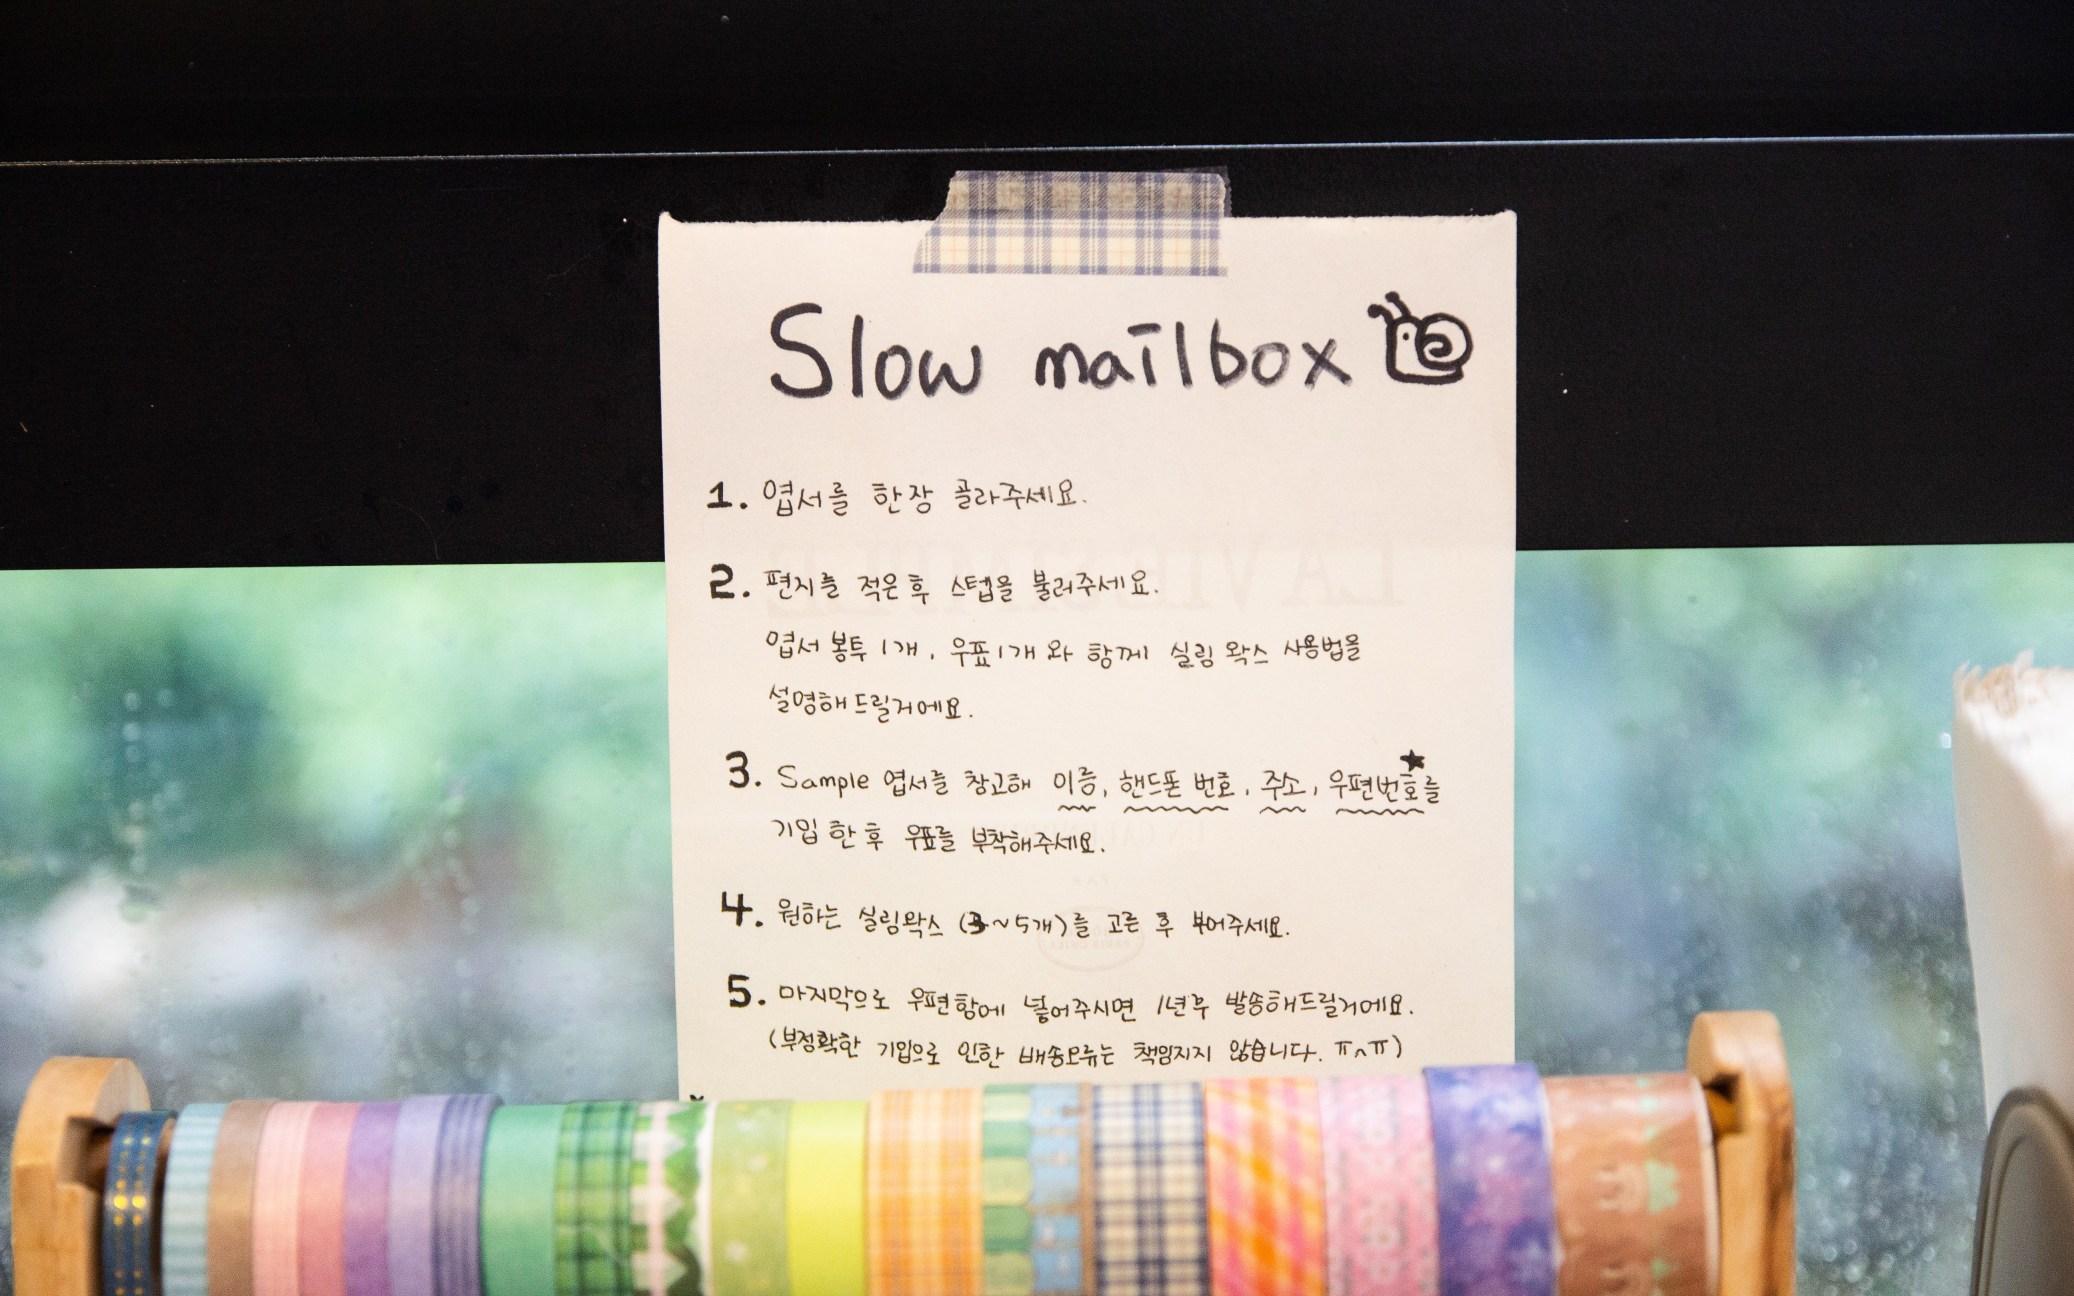 Slow mailbox
1. 엽서를 한장 골라주세요.
2. 편지를 적은 후 스텝을 불러주세요.
엽서 봉투 1개, 우표 1개 와 함께 실링 왁스 사용법을
설명해드릴거에요.
3. Sample 엽서를 참고해 이름, 핸드폰 번호, 주소, 우편번호★를
기입 한 후 우표를 부착해주세요.
4. 원하는 실링왁스 (3~5개)를 고른 후 부어주세요.
5. 마지막으로 우편함에 넣어주시면 1년후 발송해드릴거에요.
(부정확한 기입으로 인한 배송오류는 책임지지 않습니다. ㅠㅅㅠ)